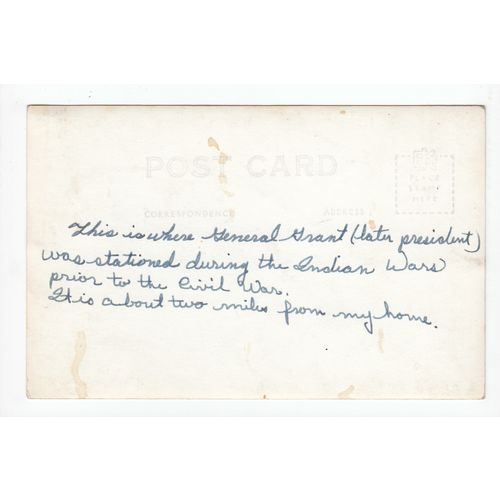 POST CARD
PLACE
STAMP
HERE
CORRESPONDENCE ADDRESS
This is where General Grant (later president)
was stationed during the Indian Wars
prior to the Civil War.
It is about two miles from my home.